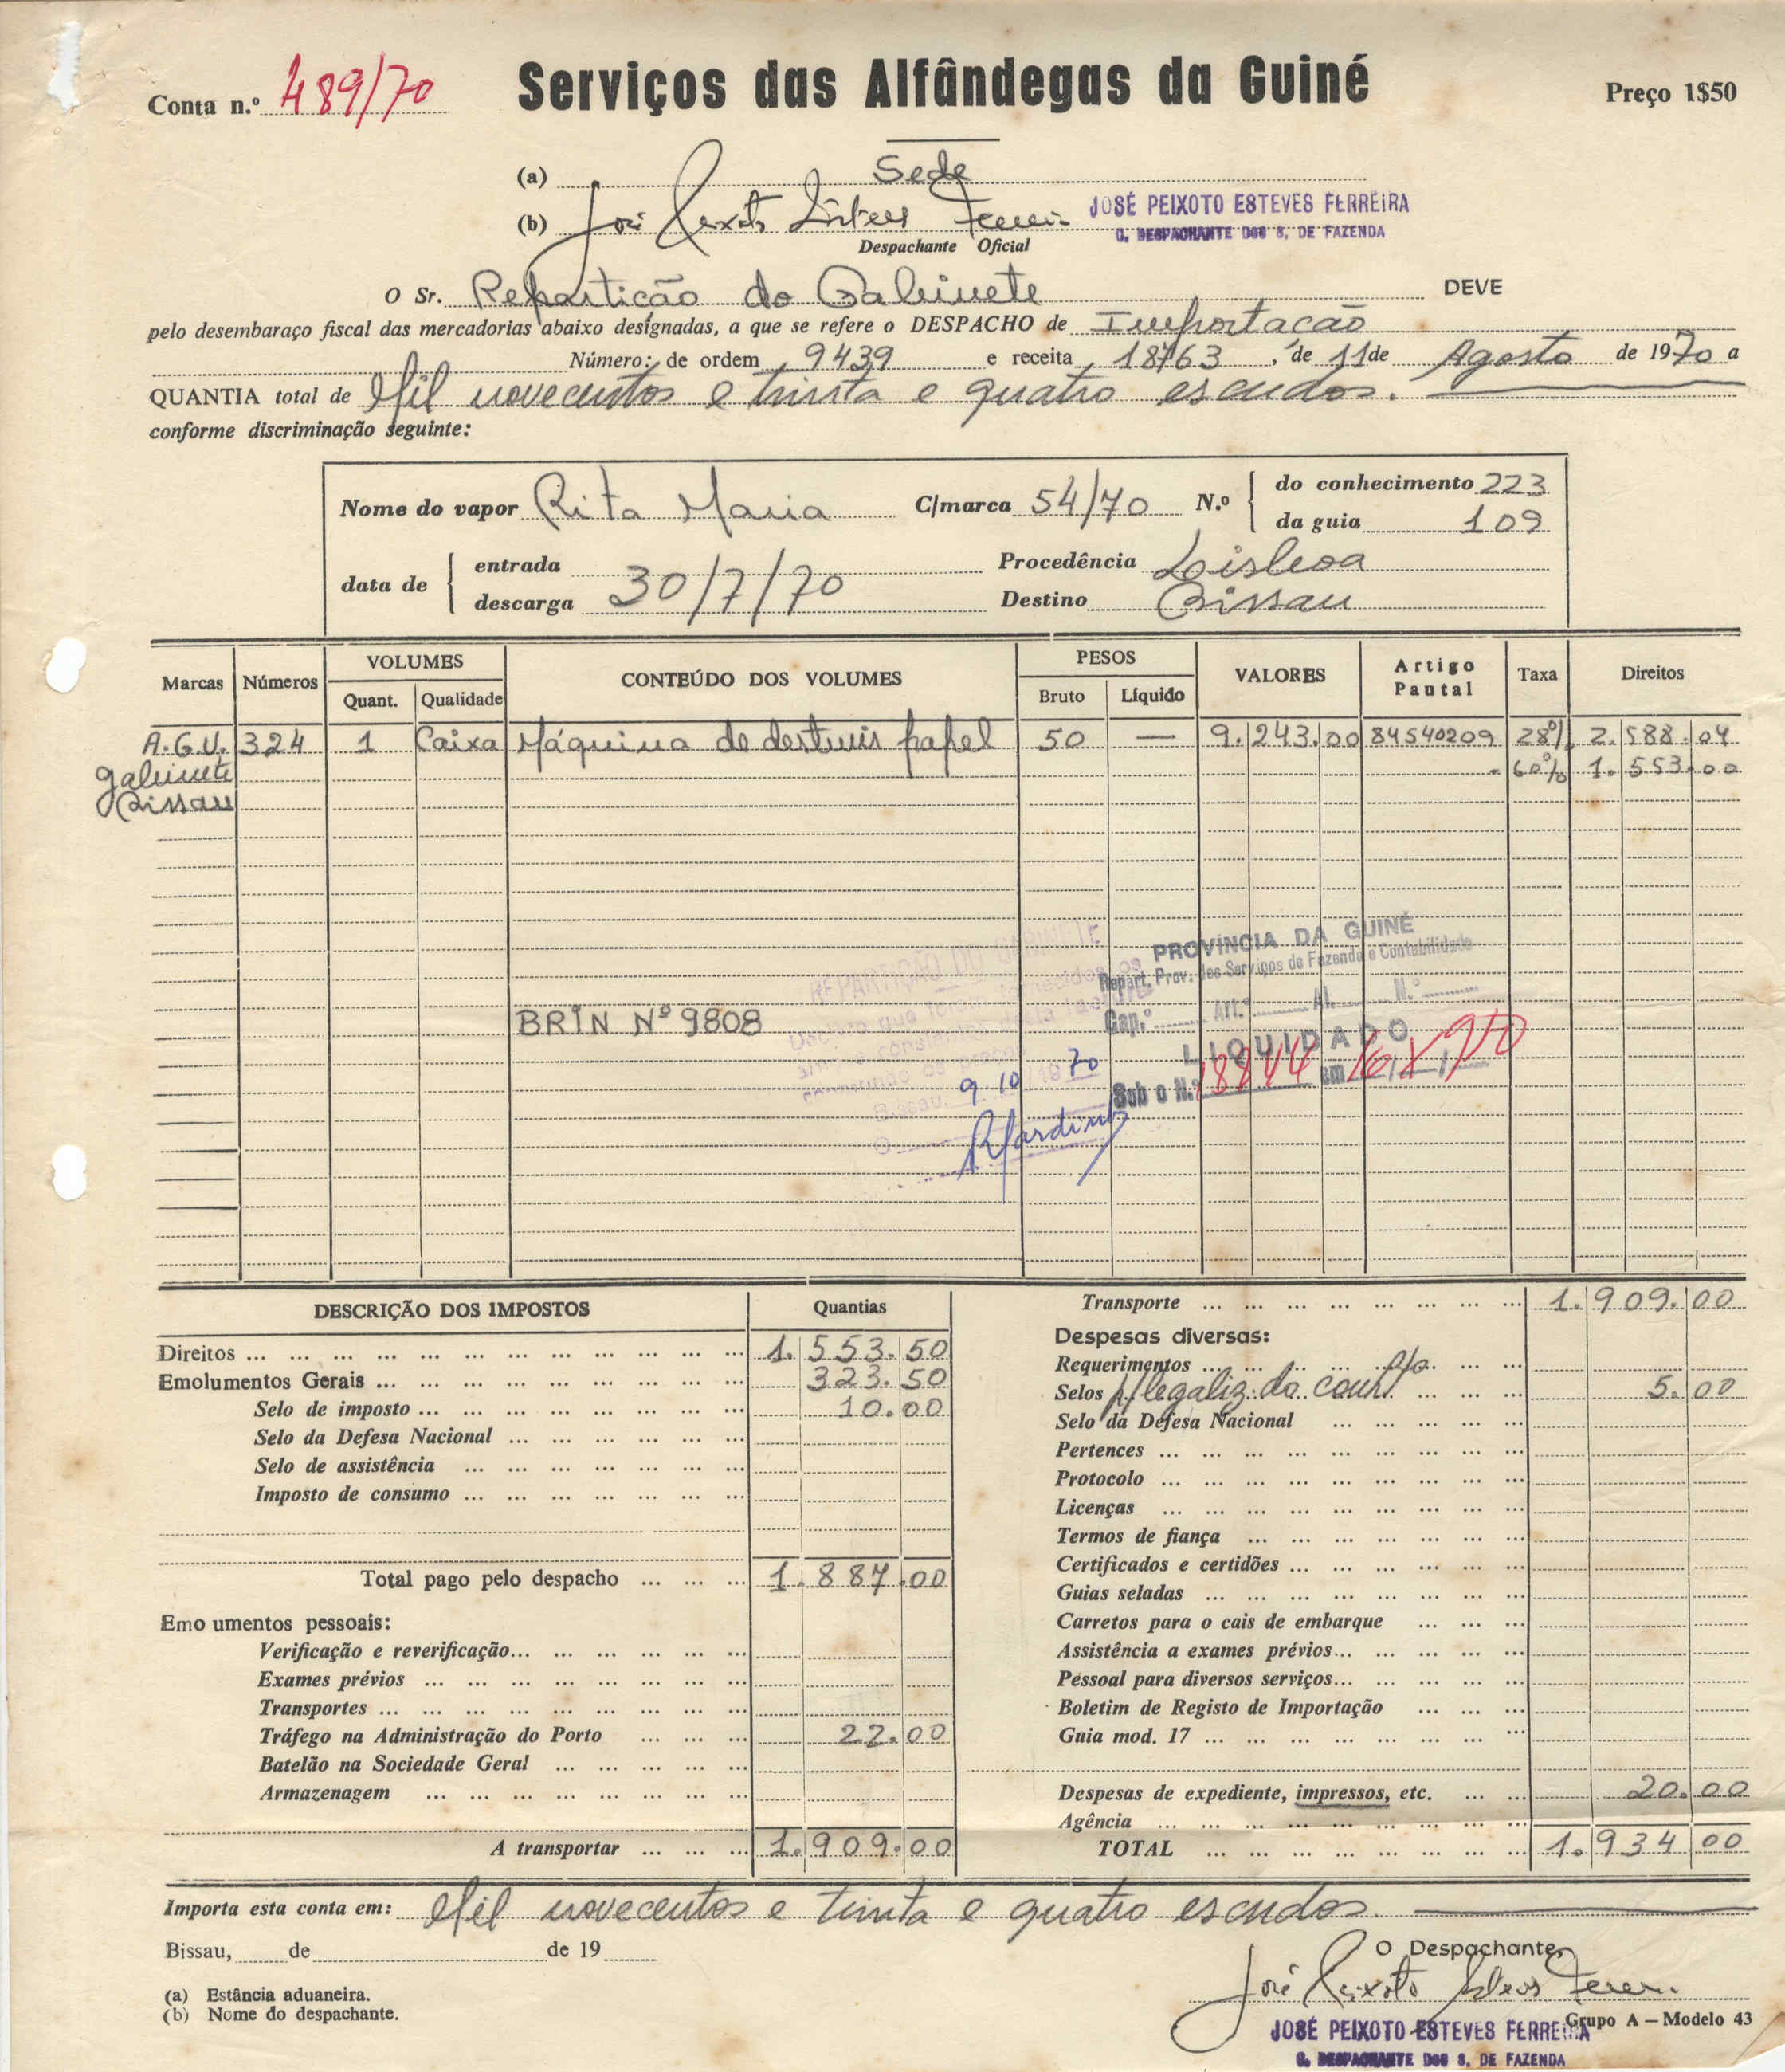 Conta n.º 489/70 Serviços das Alfândegas da Guiné Preço 1$50
(a) Sede
(b) José Peixoto Esteves Ferreira JOSÉ PEIXOTO ESTEVES FERREIRA
Despachante Oficial C. DESPACHANTE DOS S. DE FAZENDA
O Sr. Repartição do Gabinete DEVE
pelo desembaraço fiscal das mercadorias abaixo designadas, a que se refere o DESPACHO de Importação
Número: de ordem 9439 e receita 18763, de 11 de Agosto de 1970 a
QUANTIA total de Mil novecentos e trinta e quatro escudos.
conforme discriminação seguinte:
Nome do vapor Rita Maria C/marca 54/70 N.º do conhecimento 223
da guia 109
data de entrada Procedência Lisboa
descarga 30/7/70 Destino Bissau
Marcas Números VOLUMES CONTEÚDO DOS VOLUMES PESOS VALORES Artigo Pautal Taxa Direitos
Quant. Qualidade Bruto Líquido
A.G.U. 324 1 Caixa Máquina de destruir papel 50 — 9.243.00 84540209 28% 2.588.04
gabinete - 60% 1.553.00
Bissau
REPARTIÇÃO DO GABINETE
PROVÍNCIA DA GUINÉ
Repart. Prov. dos Serviços de Fazenda e Contabilidade
Cap.º Art.º Al. N.º
BRIN Nº 9808
LIQUIDADO
Sub o N.º 18844 em 16/X/970
Bissau, 9 10 1970
O
DESCRIÇÃO DOS IMPOSTOS Quantias
Direitos ... 1.553.50
Emolumentos Gerais ... 323.50
Selo de imposto ... 10.00
Selo da Defesa Nacional ...
Selo de assistência ...
Imposto de consumo ...
Total pago pelo despacho ... 1.887.00
Emo umentos pessoais:
Verificação e reverificação...
Exames prévios ...
Transportes ...
Tráfego na Administração do Porto ... 22.00
Batelão na Sociedade Geral ...
Armazenagem ...
A transportar ... 1.909.00
Transporte ... 1.909.00
Despesas diversas:
Requerimentos ...
Selos p/legaliz. do conh.to ... 5.00
Selo da Defesa Nacional ...
Pertences ...
Protocolo ...
Licenças ...
Termos de fiança ...
Certificados e certidões ...
Guias seladas ...
Carretos para o cais de embarque ...
Assistência a exames prévios...
Pessoal para diversos serviços...
Boletim de Registo de Importação ...
Guia mod. 17 ...
Despesas de expediente, impressos, etc. ... 20.00
Agência ...
TOTAL ... 1.934.00
Importa esta conta em: Mil novecentos e trinta e quatro escudos.
Bissau, de de 19
O Despachante,
José Peixoto Esteves Ferreira
(a) Estância aduaneira.
(b) Nome do despachante.
Grupo A — Modelo 43
JOSÉ PEIXOTO ESTEVES FERREIRA
C. DESPACHANTE DOS S. DE FAZENDA